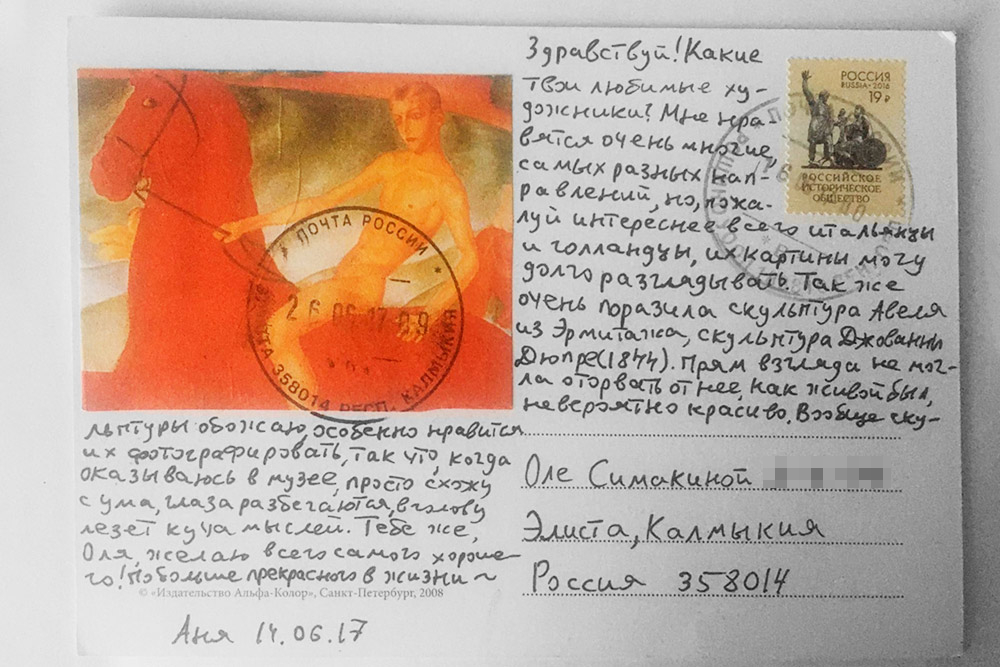 Здравствуй! Какие
твои любимые ху-
дожники? Мне нра-
вятся очень многие,
самых разных нап-
равлений, но, пожа-
луй интереснее всего итальянцы
и голландцы, их картины могу
долго разглядывать. Так же
очень поразила скульптура Авеля
из Эрмитажа, скульптура Джованни
Дюпре(1844). Прям взгляда не мог-
ла оторвать от нее, как живой был,
невероятно красиво. Вообще ску-
льптуры обожаю, особенно нравится
их фотографировать, так что, когда
оказываюсь в музее, просто схожу
с ума, глаза разбегаются, в голову
лезет куча мыслей. Тебе же,
Оля, желаю всего самого хороше-
го! Побольше прекрасного в жизни ~
© «Издательство Альфа-Колор», Санкт-Петербург, 2008
Аня 14.06.17
РОССИЯ
RUSSIA • 2016
19 ₽
РОССИЙСКОЕ
ИСТОРИЧЕСКОЕ
ОБЩЕСТВО
ПОЧТА РОССИИ
26 06 17 09
358014 РЕСП. КАЛМЫКИЯ
Оле Симакиной
Элиста, Калмыкия
Россия 358014